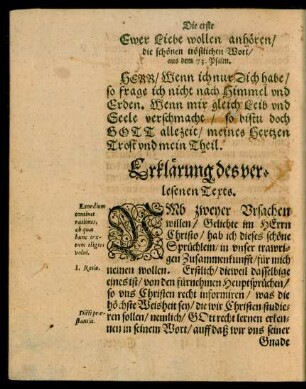 Die erste
Ewer Liebe wollen anhören/
die schönen tröstlichen Wort/
aus dem 73. Psalm.
HERR/Wenn ich nur Dich habe/
so frage ich nicht nach Himmel vnd
Erden. Wenn mir gleich Leib vnd
Seele verschmacht/ so bistu doch
GOTT allezeit/ meines Hertzen
Trost vnd mein Theil.
Erklärung des ver-
lesenen Texts.
Exordium
continet
rationes,
ob quas
hunc tex-
tum elegere
volui.
VMb zweyer Vrsachen
willen/ Geliebte im HErrn
Christo/ hab ich dieses schöne
Sprüchlein/ in vnser trawri-
gen Zusammenkunfft/ für mich
1. Ratio.
nemen wollen. Erstlich/ dieweil dasselbige
eines ist/ von den fürnehmen Heuptsprüchen/
so vns Christen recht informiren/ was die
höchste Weisheit sey/ die wir Christen studie-
Dicti præ-
stantia.
ren sollen/ nemlich/ GOtt recht lernen erken-
nen in seinem Wort/ auff daß wir vns seiner
Gnade